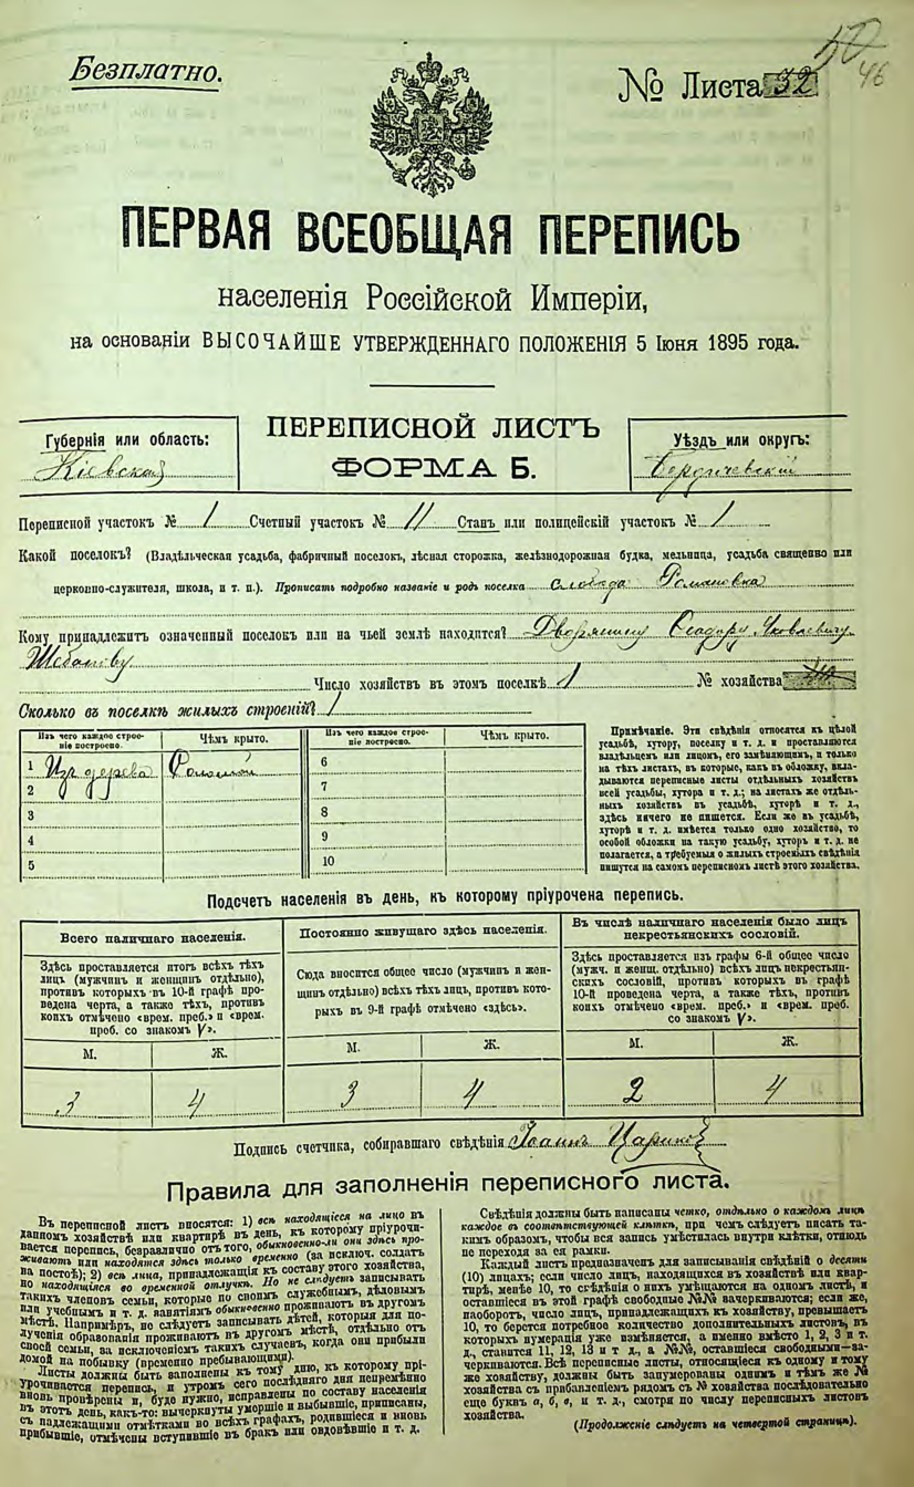 Безплатно.
46
№ Листа 32
ПЕРВАЯ ВСЕОБЩАЯ ПЕРЕПИСЬ
населенія Россійской Имперіи,
на основаніи ВЫСОЧАЙШЕ УТВЕРЖДЕННАГО ПОЛОЖЕНІЯ 5 Іюня 1895 года.
Губернія или область:
Кіевская
ПЕРЕПИСНОЙ ЛИСТЪ
ФОРМА Б.
Уѣздъ или округъ:
Бердичевскій
Переписной участокъ № 1 Счетный участокъ № 11 Станъ или полицейскій участокъ № 1
Какой поселокъ? (Владѣльческая усадьба, фабричный поселокъ, лѣсная сторожка, желѣзнодорожная будка, мельница, усадьба священно или
церковно-служителя, школа, и т. п.). Прописать подробно названіе и родъ поселка слобода Романовка
Кому принадлежитъ означенный поселокъ или на чьей землѣ находится? Дворянину Яковлевичу
Число хозяйствъ въ этомъ поселкѣ 1 № хозяйства
Сколько въ поселкѣ жилыхъ строеній? 1
Изъ чего каждое строе-
ніе построено.
Чѣмъ крыто.
Изъ чего каждое строе-
ніе построено.
Чѣмъ крыто.
1 Изъ дерева
2
3
4
5
6
7
8
9
10
Примѣчаніе. Эти свѣдѣнія относятся къ цѣлой
усадьбѣ, хутору, поселку и т. д. и проставляются
владѣльцемъ или лицомъ, его замѣняющимъ, и только
на тѣхъ листахъ, въ которые, какъ въ обложку, вкла-
дываются переписные листы отдѣльныхъ хозяйствъ
всей усадьбы, хутора и т. д.; на листахъ же отдѣль-
ныхъ хозяйствъ въ усадьбѣ, хуторѣ и т. д.,
здѣсь ничего не пишется. Если же въ усадьбѣ,
хуторѣ и т. д. имѣется только одно хозяйство, то
особой обложки на такую усадьбу, хуторъ и т. д. не
полагается, а требуемыя о жилыхъ строеніяхъ свѣдѣнія
пишутся на самомъ переписномъ листѣ этого хозяйства.
Подсчетъ населенія въ день, къ которому пріурочена перепись.
Всего наличнаго населенія.
Здѣсь проставляется итогъ всѣхъ тѣхъ
лицъ (мужчинъ и женщинъ отдѣльно),
противъ которыхъ въ 10-й графѣ про-
ведена черта, а также тѣхъ, противъ
коихъ отмѣчено «врем. преб.» и «врем.
преб. со знакомъ V».
М. Ж.
3 4
Постоянно живущаго здѣсь населенія.
Сюда вносится общее число (мужчинъ и жен-
щинъ отдѣльно) всѣхъ тѣхъ лицъ, противъ кото-
рыхъ въ 9-й графѣ отмѣчено «здѣсь».
М. Ж.
3 4
Въ числѣ наличнаго населенія было лицъ
некрестьянскихъ сословій.
Здѣсь проставляется изъ графы 6-й общее число
(мужч. и женщ. отдѣльно) всѣхъ лицъ некрестьян-
скихъ сословій, противъ которыхъ въ графѣ
10-й проведена черта, а также тѣхъ, противъ
коихъ отмѣчено «врем. преб.» и «врем. преб.
со знакомъ V».
М. Ж.
2 4
Подпись счетчика, собиравшаго свѣдѣнія Іоаннъ
Правила для заполненія переписного листа.
Въ переписной листъ вносятся: 1) всѣ находящіеся на лицо въ
данномъ хозяйствѣ или квартирѣ въ день, къ которому пріурочи-
вается перепись, безразлично отъ того, обыкновенно-ли они здѣсь про-
живаютъ или находятся здѣсь только временно (за исключ. солдатъ
на постоѣ); 2) всѣ лица, принадлежащія къ составу этого хозяйства,
но находящіяся во временной отлучкѣ. Но не слѣдуетъ записывать
такихъ членовъ семьи, которые по своимъ служебнымъ, дѣловымъ
или учебнымъ и т. д. занятіямъ обыкновенно проживаютъ въ другомъ
мѣстѣ. Напримѣръ, не слѣдуетъ записывать дѣтей, которыя для по-
лученія образованія проживаютъ въ другомъ мѣстѣ, отдѣльно отъ
своей семьи, за исключеніемъ такихъ случаевъ, когда они прибыли
домой на побывку (временно пребывающими).
Листы должны быть заполнены къ тому дню, къ которому прі-
урочивается перепись, и утромъ сего послѣдняго дня непремѣнно
вновь провѣрены и, буде нужно, исправлены по составу населенія
въ этотъ день, какъ-то: вычеркнуты умершіе и выбывшіе, приписаны,
съ надлежащими отмѣтками во всѣхъ графахъ, родившіеся и вновь
прибывшіе, отмѣчены вступившіе въ бракъ или овдовѣвшіе и т. д.
Свѣдѣнія должны быть написаны четко, отдѣльно о каждомъ лицѣ
каждое въ соотвѣтствующей клѣткѣ, при чемъ слѣдуетъ писать та-
кимъ образомъ, чтобы вся запись умѣстилась внутри клѣтки, отнюдь
не переходя за ея рамки.
Каждый листъ предназначенъ для записыванія свѣдѣній о десяти
(10) лицахъ; если число лицъ, находящихся въ хозяйствѣ или квар-
тирѣ, менѣе 10, то свѣдѣнія о нихъ умѣщаются на одномъ листѣ, и
оставшіеся въ этой графѣ свободные №№ зачеркиваются; если же,
наоборотъ, число лицъ, принадлежащихъ къ хозяйству, превышаетъ
10, то берется потребное количество дополнительныхъ листовъ, въ
которыхъ нумерація уже измѣняется, а именно вмѣсто 1, 2, 3 и т.
д., ставится 11, 12, 13 и т. д., а №№, оставшіеся свободными—за-
черкиваются. Всѣ переписные листы, относящіеся къ одному и тому
же хозяйству, должны быть занумерованы однимъ и тѣмъ же №
хозяйства съ прибавленіемъ рядомъ съ № хозяйства послѣдовательно
еще буквъ а, б, в, и т. д., смотря по числу переписныхъ листовъ
хозяйства.
(Продолженіе слѣдуетъ на четвертой страницѣ).